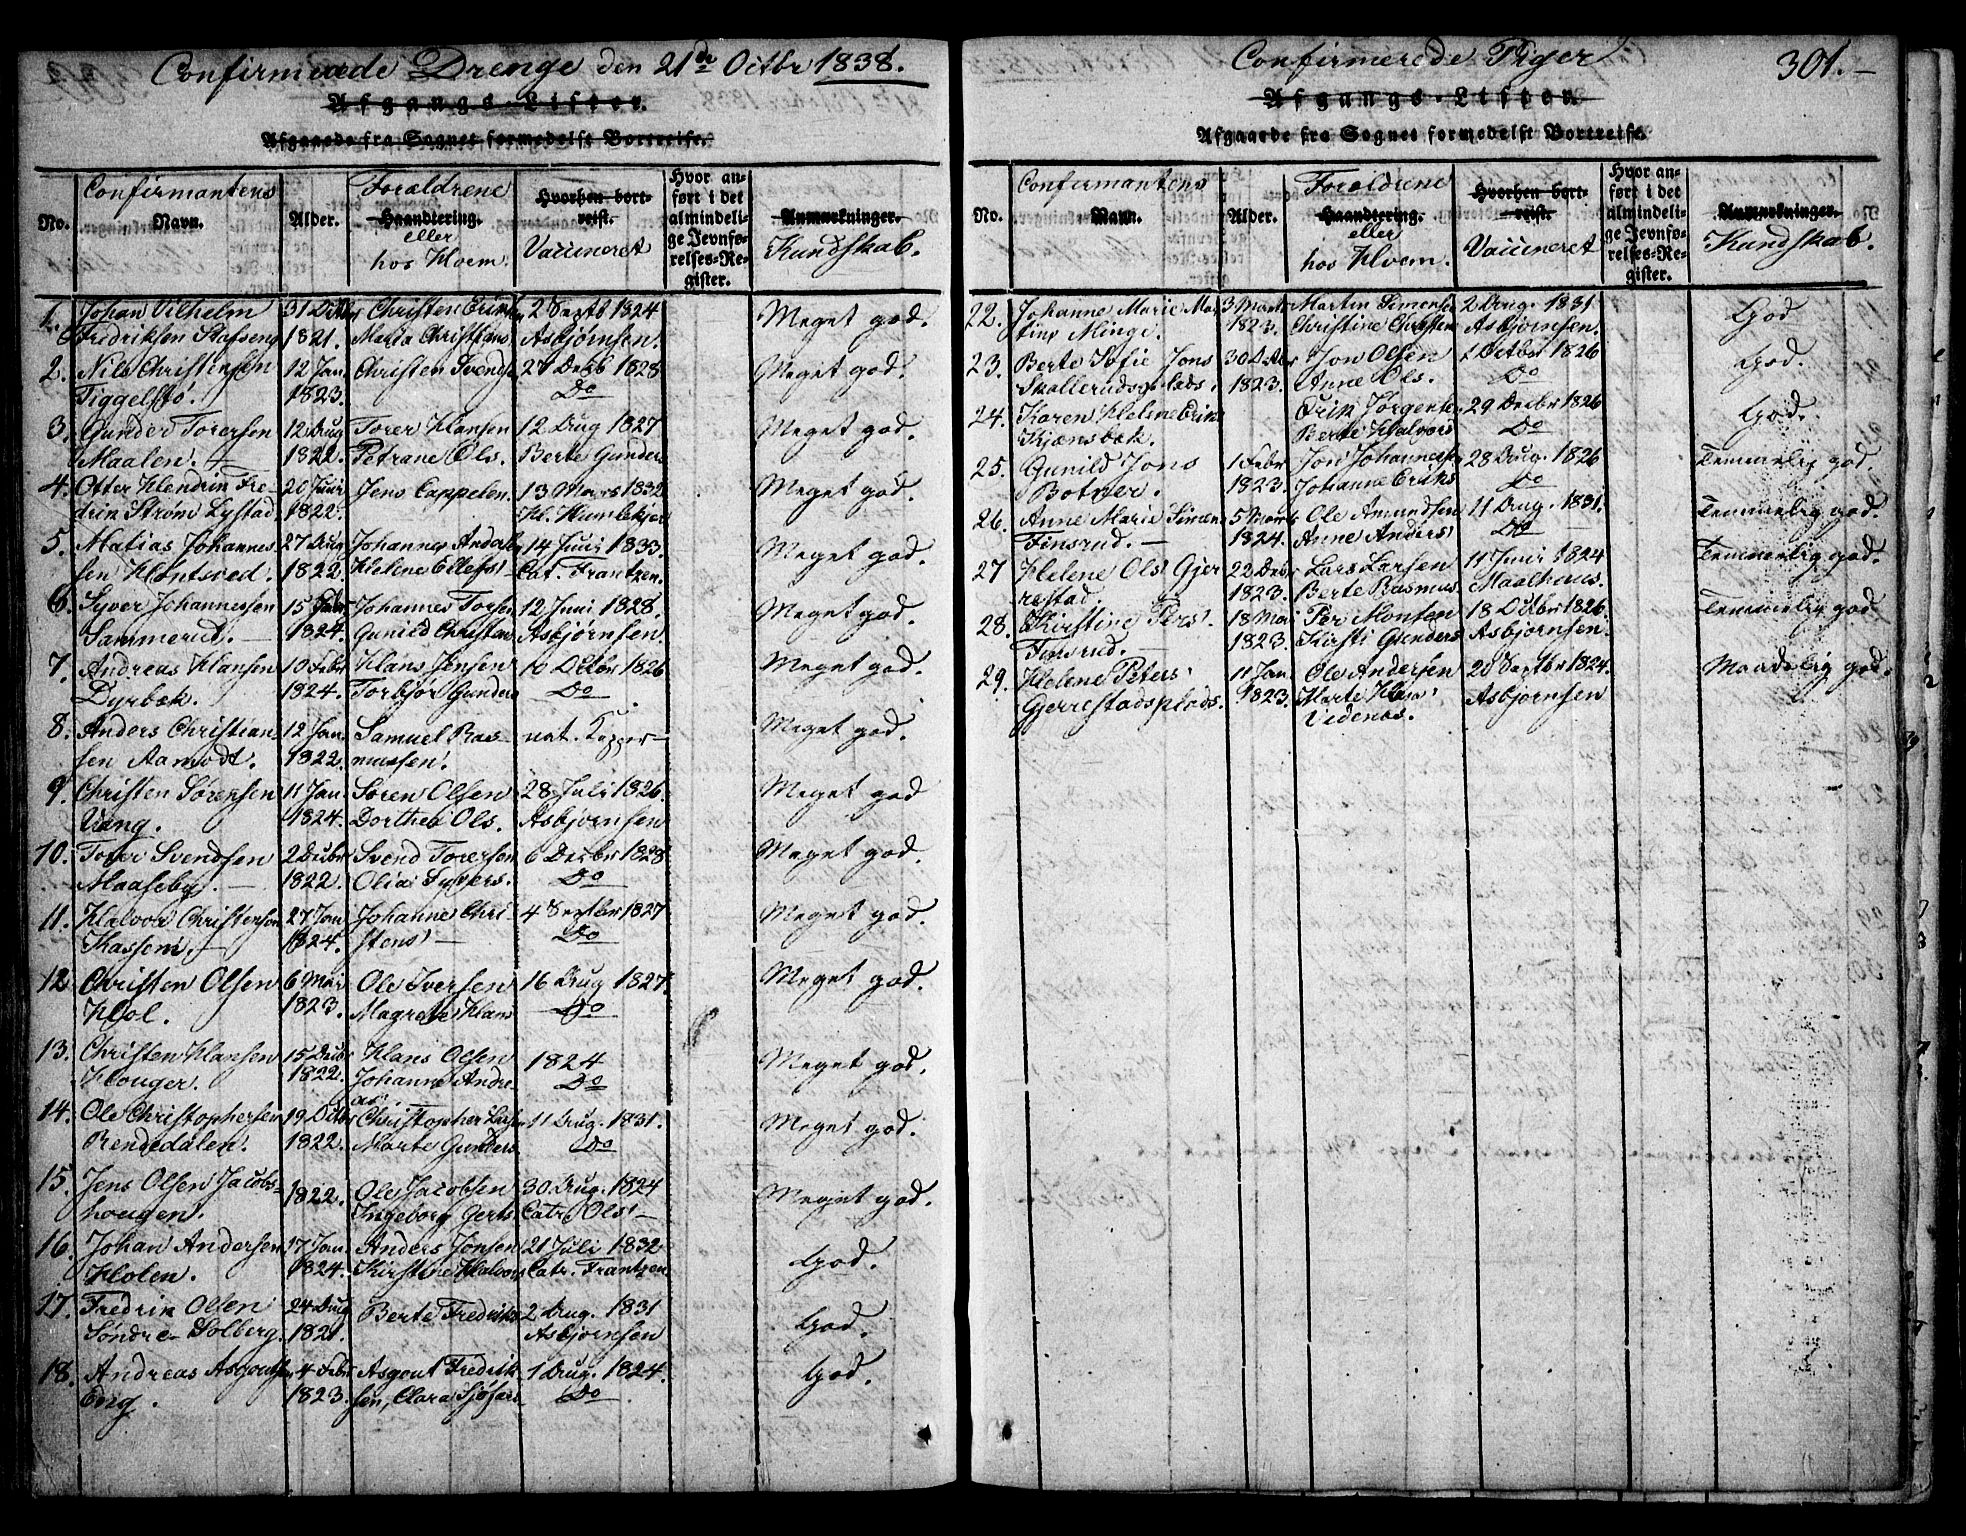 Confirmerede Drenge den 21de Octbr 1838.
Afgangs-Lister.
Afgaaede fra Sognet formedelst Bortreise.
No.
Confirmantens
Navn.
Alder.
Forældrene
Haandtering.
eller
hos Hvem.
Hvorhen bort-
reist.
Vaccineret
Hvor an-
ført i det
almindeli-
ge Jevnfø-
relses-Re-
gister.
Anmærkninger.
Kundskab.
1. Johan Vilhelm 31 Christen 2 Septb 1824 Meget god.
Fredriksen 1821. Maria Christians Asbjørnsen.
2. Nils Christensen 12 Jan Christen Svends 27 Decb 1828 Meget god.
Tiggelstø. 1823. Do
3. Gunder Torersen 12 Aug Torer Hansen 12 Aug 1827 Meget god.
Maalen. 1822. Petrane Ols. Berte Gunders
4. Otter Hendrik Fre- 20 Juni Jens Cappelen 13 Mars 1832 Meget god.
drik Strøm Lystad 1822. Humlekjer
5. Matias Johannes- 27 Aug Johannes 14 Juni 1833 Meget god.
sen 1822. Helene Ellefs Cat. Frantzen.
6. Syver Johannessen 15 Febr Johannes Torsen 12 Juni 1828. Meget god.
Sammerud. 1824. Gunild Christen Asbjørnsen.
7. Andreas Hansen 10 Febr Hans Jensen 10 Octbr 1826 Meget god.
Dyrbek. 1824. Torbjør Gunders Do
8. Anders Christian- 12 Jan. Samuel Ras- nat. Kopper Meget god.
sen Aamodt. 1822. mussen.
9. Christen Sørensen 11 Jan. Søren Olsen 28 Juli 1826. Meget god
Vang. 1824. Dorthea Ols. Asbjørnsen
10. Torer Svendsen 2 Decbr Svend Torersen 6 Decbr 1828 Meget god.
Maaseby. 1822. Olia Syvers. Do
11. Halvor Christensen 27 Jan Johanne Chri- 4 Septbr 1827 Meget god.
Kassem. 1824. stens Do
12. Christen Olsen 6 Mai Ole Iversen 16 Aug 1827. Meget god.
Hol. 1823. Magrete Hans Do
13. Christen Hansen 15 Decbr Hans Olsen 1824 Meget god.
Houger. 1822. Johanne Andre- Do
as.
14. Ole Christophersen 19 Octbr Christopher Larsen 11 Aug. 1831. Meget god.
Rendedalen. 1822. Marte Gunders Do
15. Jens Olsen Jacobs- 1822. Ole Jacobsen 30 Aug. 1824 Meget god.
hougen. Ingeborg Gerts Catr. Ols
16. Johan Andersen 17 Jan. Anders Jonsen 21 Juli 1832 God.
Holen. 1824. Kirstine Halvors Catr. Frantzen.
17. Fredrik Olsen 24 Aug Berte Fredriks 2 Aug. 1831 God.
Søndre Solberg. 1821. Asbjørnsen
18. Andreas Asgoutsen 4 Febr Asgout Fredrik- 1 Aug. 1824. God.
Eng. 1823. sen, Clara Do
Confirmerede Piger
301.
Afgangs-Listen
Afgaaede fra Sognet formedelst Bortreise.
No.
Confirmantens
Navn.
Alder.
Forældrene
Haandtering.
eller
hos Hvem.
Hvorhen bort-
reist.
Vaccineret
Hvor an-
ført i det
almindeli-
ge Jevnfø-
relses-Re-
gister.
Anmærkninger.
Kundskab.
22. Johanne Marie Mar- 3 Marts Martin Simensen 2 Aug. 1831 God
tins Minge. 1823. Christine Christen Asbjørnsen.
23. Berte Sofie Jons 30 Octbr Jon Olsen 1 Octbr 1826 God.
Skalleradsplads. 1823. Anne Ols. Do
24. Karen Helene Erik Erik Jørgens 29 Decbr 1826 God.
Kjænsbek. Berte Halvors Do
25. Gunild Jons 1 Febr Jon Johannes 28 Aug. 1826 Temmelig god.
Botner. 1823. Johanne Eriks Do
26. Anne Marie 5 Marts Ole Amundsen 11 Aug. 1831. Temmelig god.
Finsrud. 1824. Anne Anders Do
27 Helene Ols Gjer- 22 Decbr Lars Larsen 11 Juni 1824 Temmelig god.
restad. 1823. Berte Rasmus Maalhuus.
28. Kirstine Pers 18 Mai Per Monsen 18 Octbr 1826. Temmelig god
Finsrud. 1823. Kirsti Gunders Asbjørnsen.
29. Helene Peters 11 Jan. Ole Andersen 20 Septbr 1824. Maadelig god.
Gjerrestadsplads. 1823. Marte Asbjørnsen
Videnæs.